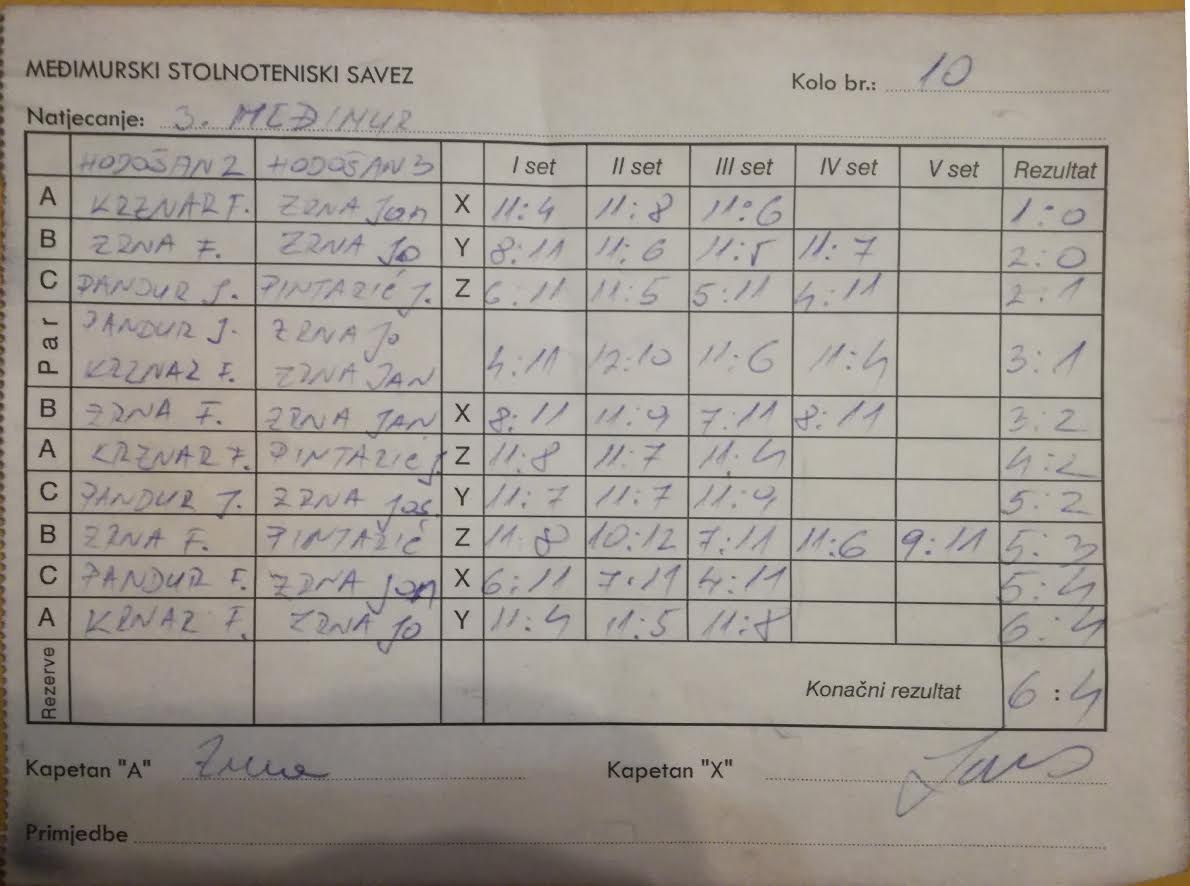 MEĐIMURSKI STOLNOTENISKI SAVEZ
Kolo br.: 10
Natjecanje: 3. MEĐIMUR
HODOŠAN 2 HODOŠAN 3 I set II set III set IV set V set Rezultat
A KRZNAR F. ZRNA Jan X 11:4 11:8 11:6 1:0
B ZRNA F. ZRNA Jo Y 8:11 11:6 11:5 11:7 2:0
C PANDUR J. PINTARIĆ J. Z 6:11 11:5 5:11 4:11 2:1
Par PANDUR J. ZRNA Jo
KRZNAR F. ZRNA JAN 4:11 12:10 11:6 11:4 3:1
B ZRNA F. ZRNA JAN X 8:11 11:9 7:11 8:11 3:2
A KRZNAR F. PINTARIĆ J. Z 11:8 11:7 11:4 4:2
C PANDUR J. ZRNA Jos Y 11:7 11:7 11:9 5:2
B ZRNA F. PINTARIĆ Z 11:8 10:12 7:11 11:6 9:11 5:3
C PANDUR F. ZRNA Jan X 6:11 7:11 4:11 5:4
A KRNAR F. ZRNA Jo Y 11:4 11:5 11:8 6:4
Rezerve Konačni rezultat 6:4
Kapetan "A" Zrna Kapetan "X"
Primjedbe